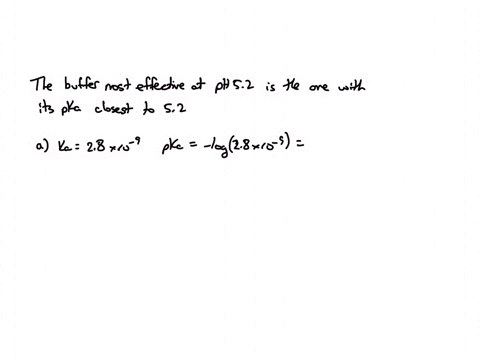 The buffer most effective at pH 5.2 is the one with
its pKa closest to 5.2
a) Ka = 2.8 × 10⁻⁹ pKa = -log(2.8 × 10⁻⁹) =